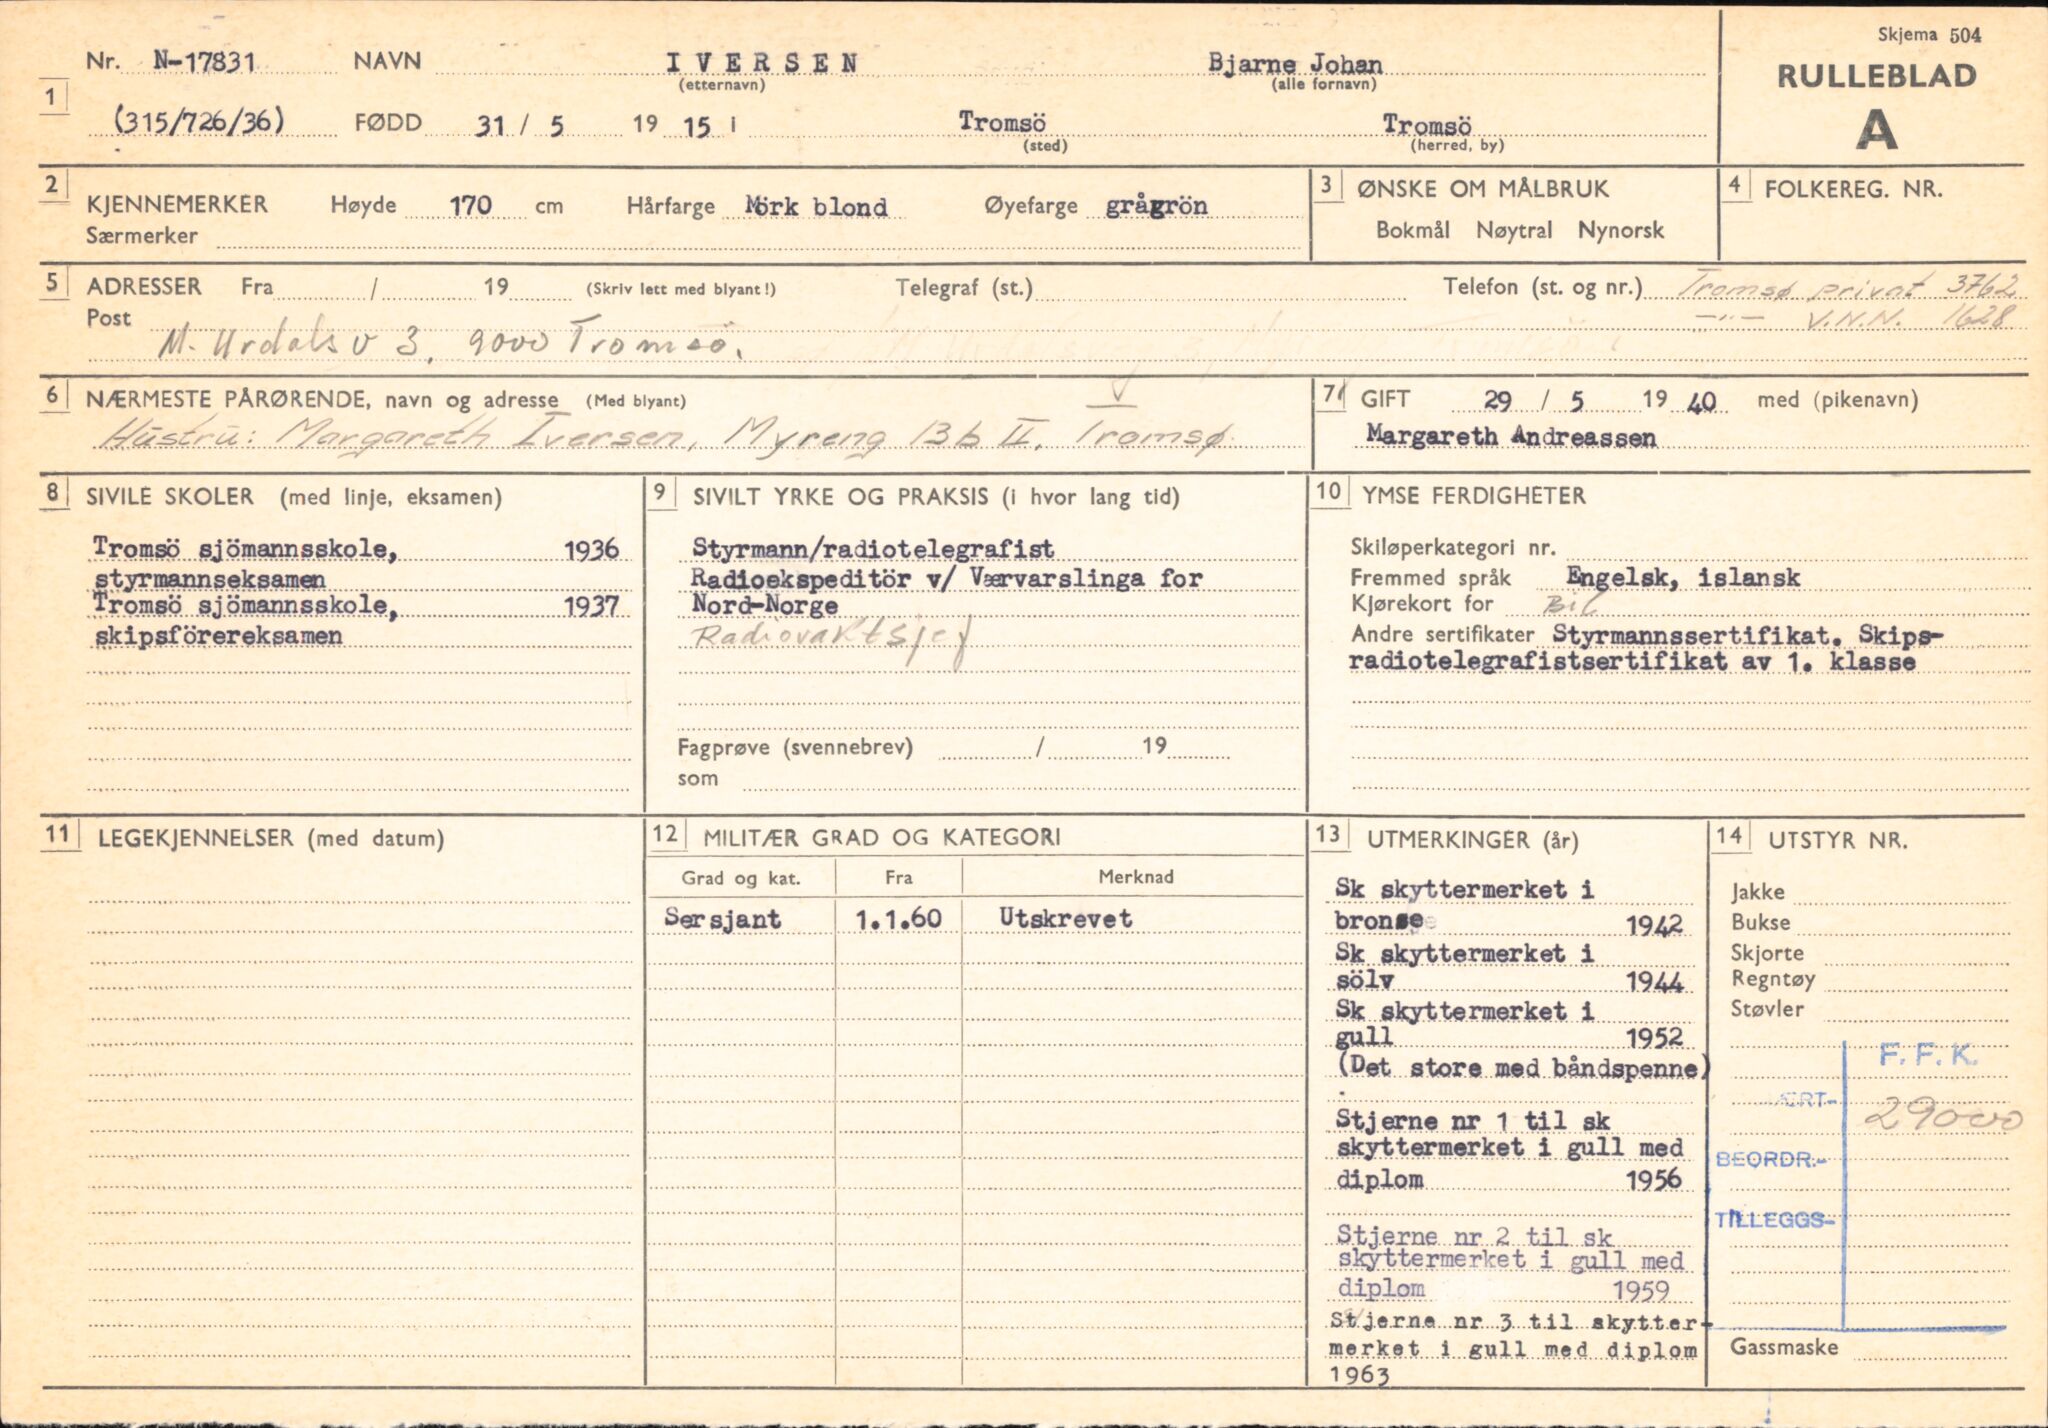 Skjema 504
RULLEBLAD
A
1
Nr. N-17831 NAVN IVERSEN Bjarne Johan
(etternavn) (alle fornavn)
(315/726/36) FØDD 31 / 5 19 15 i Tromsö Tromsö
(sted) (herred, by)
2
KJENNEMERKER Høyde 170 cm Hårfarge Mörk blond Øyefarge grågrön
Særmerker
3 ØNSKE OM MÅLBRUK
Bokmål Nøytral Nynorsk
4 FOLKEREG. NR.
5 ADRESSER Fra / 19 (Skriv lett med blyant!) Telegraf (st.) Telefon (st. og nr.) Tromsø privat 3762
Post —"— V.N.N. 1628
M. Urdals v 3, 9000 Tromsö.
6 NÆRMESTE PÅRØRENDE, navn og adresse (Med blyant)
Hustru: Margareth Iversen, Myreng 13b II, Tromsø
7 GIFT 29 / 5 19 40 med (pikenavn)
Margareth Andreassen
8 SIVILE SKOLER (med linje, eksamen)
Tromsö sjömannsskole, 1936
styrmannseksamen
Tromsö sjömannsskole, 1937
skipsförereksamen
9 SIVILT YRKE OG PRAKSIS (i hvor lang tid)
Styrmann/radiotelegrafist
Radioekspeditör v/ Værvarslinga for
Nord-Norge
Radiovaktsjef
Fagprøve (svennebrev) / 19
som
10 YMSE FERDIGHETER
Skiløperkategori nr.
Fremmed språk Engelsk, islansk
Kjørekort for Bil
Andre sertifikater Styrmannssertifikat. Skips-
radiotelegrafistsertifikat av 1. klasse
11 LEGEKJENNELSER (med datum)
12 MILITÆR GRAD OG KATEGORI
Grad og kat. Fra Merknad
Sersjant 1.1.60 Utskrevet
13 UTMERKINGER (år)
Sk skyttermerket i
bronse 1942
Sk skyttermerket i
sölv 1944
Sk skyttermerket i
gull 1952
(Det store med båndspenne)
Stjerne nr 1 til sk
skyttermerket i gull med
diplom 1956
Stjerne nr 2 til sk
skyttermerket i gull med
diplom 1959
Stjerne nr 3 til skytter-
merket i gull med diplom
1963
14 UTSTYR NR.
Jakke
Bukse
Skjorte
Regntøy
Støvler
F. F. K.
ÆRT- 29000
BEORDR.-
TILLEGGS-
Gassmaske